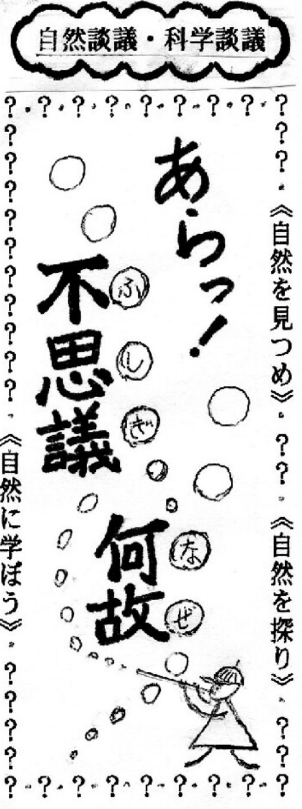 自然談議・科学談議
?・?・?・?・?・?・?・?・?
???・《自然を見つめ》・??・《自然を探り》・???
あらっ!
不思議
ふしぎ
何故
なぜ
??????????・《自然に学ぼう》・?????
?・?・?・?・?・?・?・?・?